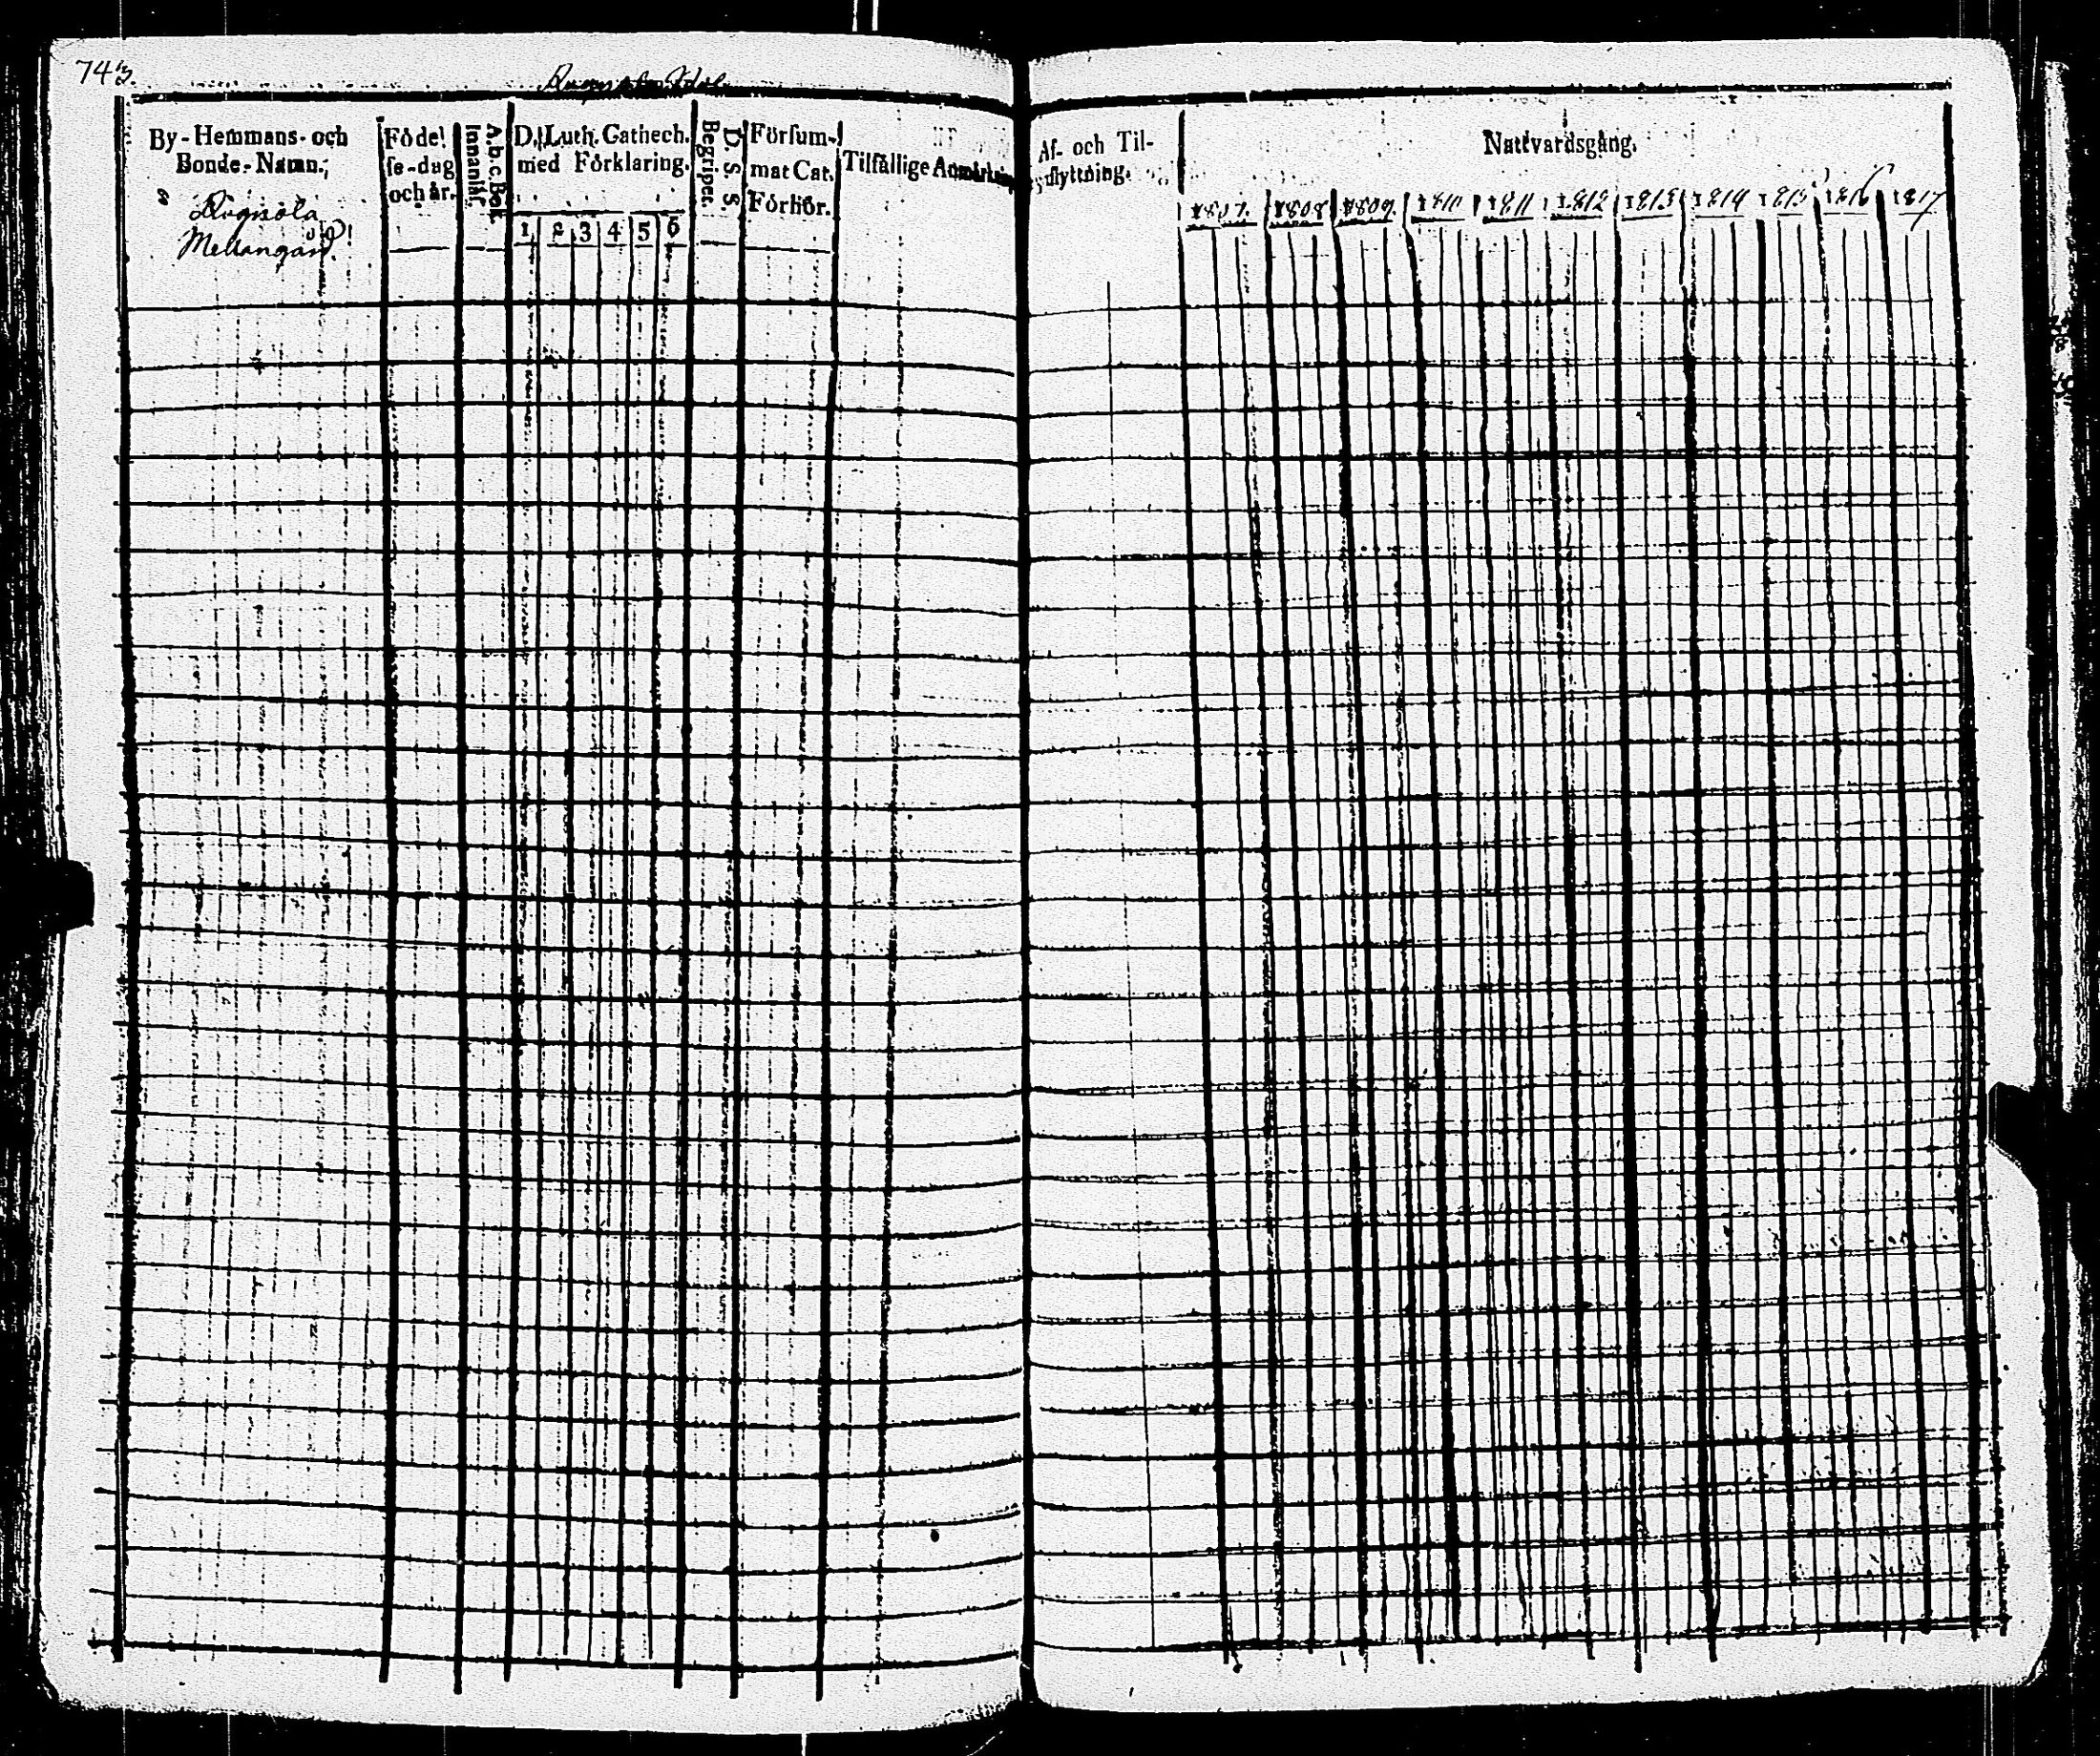 743.
By-Hemmans- och
Bonde-Namn.
Mellangård.
Föde!
se-dag
och år.
A.b.c. Bok
Innantil.
D. Luth. Cathech.
med Förklaring.
1 2 3 4 5 6
D. S. S.
Begriper.
Försum-
mat Cat.
Förhör.
Tilfällige Anmärkn
Af- och Til-
flyttning.
Nattvardsgång.
1807. 1808 1809. 1810 1811 1812 1813 1814 1815 1816 1817